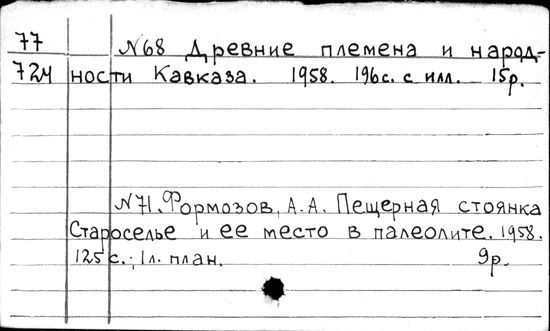 77 N68 Древние племена и народ-
72м ности Кавказа. 1958. 196с. с илл. 15р.
N71. Формозов, А.А. Пещерная стоянка
Староселье и ее место в палеолите. 1958.
125с.; 1л. план. 9р.